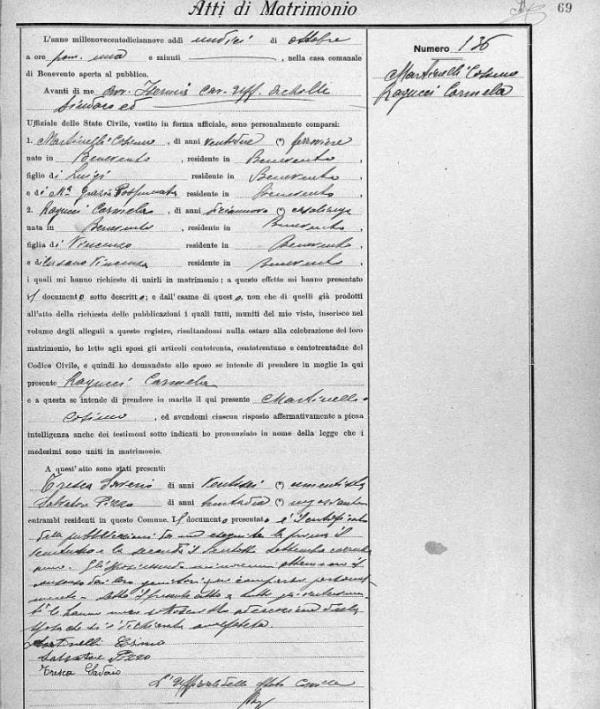 Atti di Matrimonio
69
Numero 136
Martinelli Cosimo
Ragucci Carmela
L'anno millenovecentodiciannove addì undici di ottobre
a ore pom. una e minuti , nella casa comunale
di Benevento aperta al pubblico.
Avanti di me Cav. Uff.
Sindaco ed
Uffiziale dello Stato Civile, vestito in forma ufficiale, sono personalmente comparsi:
1. Martinelli Cosimo, di anni ventidue (*) ferroviere
nato in Benevento, residente in Benevento
figlio di Luigi residente in Benevento
e di Mª Grazia residente in Benevento
2. Ragucci Carmela, di anni diciannove (*) casalinga
nata in Benevento, residente in Benevento
figlia di Vincenzo residente in Benevento
e di Vincenza residente in Benevento
i quali mi hanno richiesto di unirli in matrimonio; a questo effetto mi hanno presentato
il documento sotto descritto; e dall'esame di questo, non che di quelli già prodotti
all'atto della richiesta delle pubblicazioni i quali tutti, muniti del mio visto, inserisco nel
volume degli allegati a questo registro, risultandomi nulla ostare alla celebrazione del loro
matrimonio, ho letto agli sposi gli articoli centotrenta, centotrentuno e centotrentadue del
Codice Civile, e quindi ho domandato allo sposo se intende di prendere in moglie la qui
presente Ragucci Carmela
e a questa se intende di prendere in marito il qui presente Martinelli
Cosimo, ed avendomi ciascun risposto affermativamente a piena
intelligenza anche dei testimoni sotto indicati ho pronunziato in nome della legge che i
medesimi sono uniti in matrimonio.
A quest'atto sono stati presenti:
Tresca di anni ventisei (*)
Salvatore Pizzo di anni trentadue (*) negoziante
entrambi residenti in questo Comune. Il documento presentato è il certificato
delle pubblicazioni da me eseguite la prima il
e la seconda il settembre corrente
anno. Gli sposi essendo minorenni ottennero il
consenso dei loro genitori
Letto il presente atto a tutti gl'intervenuti
l'hanno meco sottoscritto ad eccezione della
sposa che si è dichiarata analfabeta
Martinelli Cosimo
Salvatore Pizzo
Tresca
L'Uffiziale dello Stato Civile